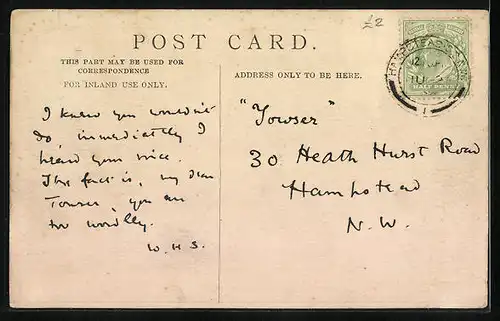 £2
POST CARD.
THIS PART MAY BE USED FOR
CORRESPONDENCE
FOR INLAND USE ONLY.
ADDRESS ONLY TO BE HERE.
HALF PENNY
I knew you wouldn't
do, immediately I
heard your voice.
The fact is, my dear
Towser, you are
too wordly.
W.H.S.
"Towser"
30 Heath Hurst Road
Hampstead
N.W.